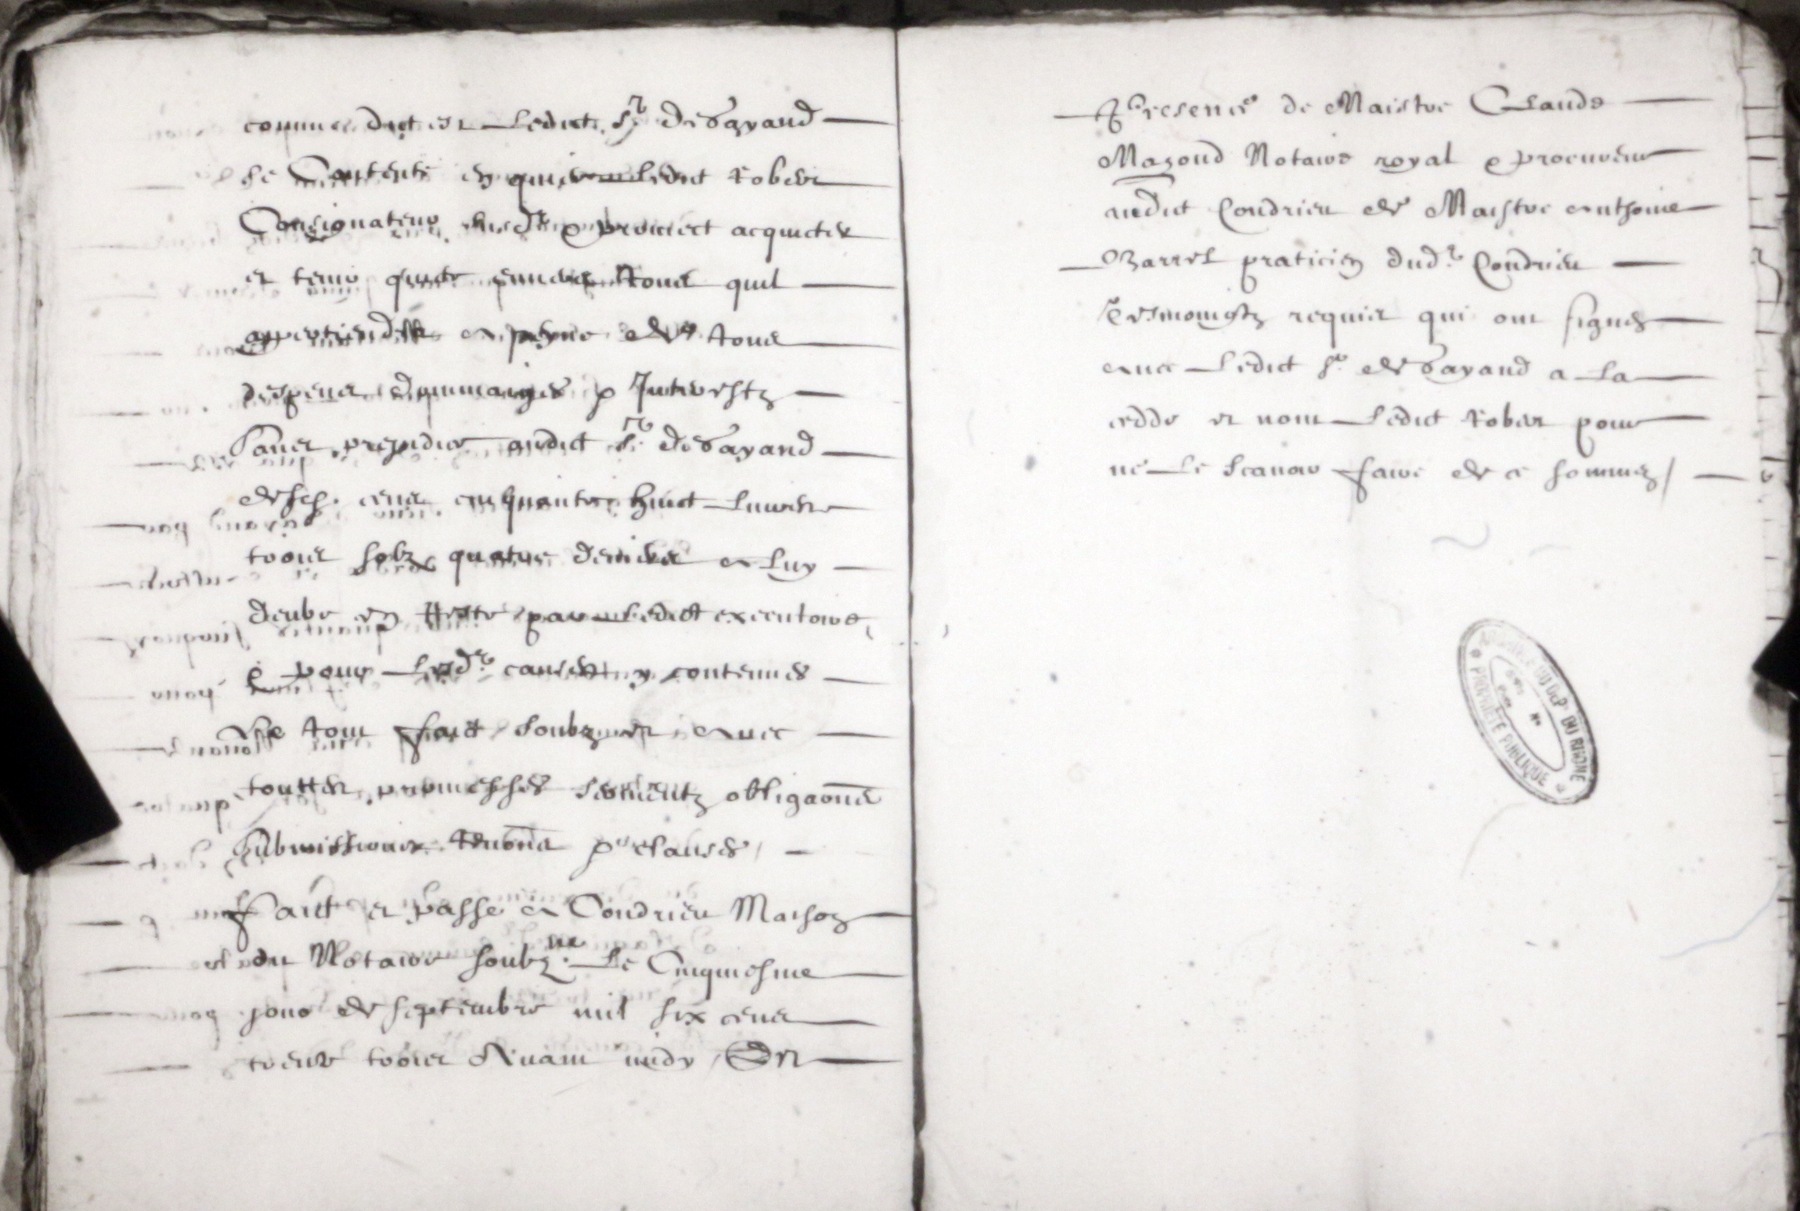 comme dict est ledict sr de Bayand
se contente et quicte ledict Robert
Consignateur susdt & promect acquicter
et tenir quicte envers tous quil
appertiendra a peyne de tous
despens dommaiges & Interestz
Sans prejudice audict sr de Bayand
desd. cens cinquante huict livres
trois solz quatre deniers a luy
deubz en reste par ledict executoire
& pour lesdt causes y contenues
Le tout faict soubz et avec
touttes promesses serments obligaons
submissions renons & clauses
Faict et passe a Condrieu Maison
du Notaire soubzne le Cinquiesme
jour de septembre mil six cens
trente trois Avant midy En
Presence de Maistre Claude
Mazond Notaire royal & procureur
audict Condrieu de Maistre anthoine
Barrel praticien dudt Condrieu
tesmoingtz requis qui ont signes
avec ledict sr de Bayand a la
cedde et non ledict Robert pour
ne le scavoir faire de ce sommez
ARCHIVES DU DEPt DU RHONE
PROPRIETE PUBLIQUE